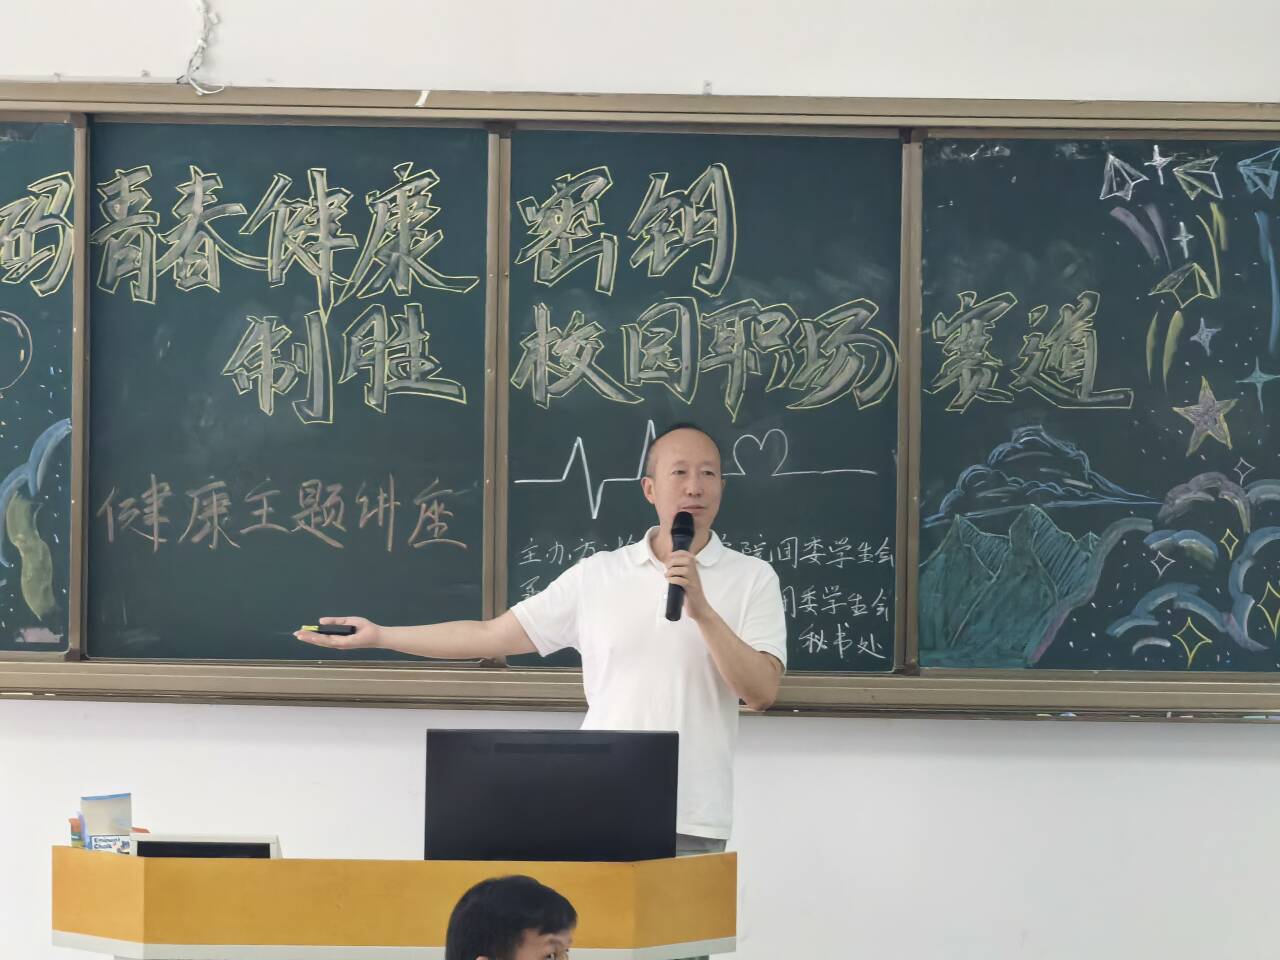 码青春健康 密钥
制胜 校园职场 赛道
健康主题讲座
主办方 学院团委学生会
团委学生会
秘书处
Chalk